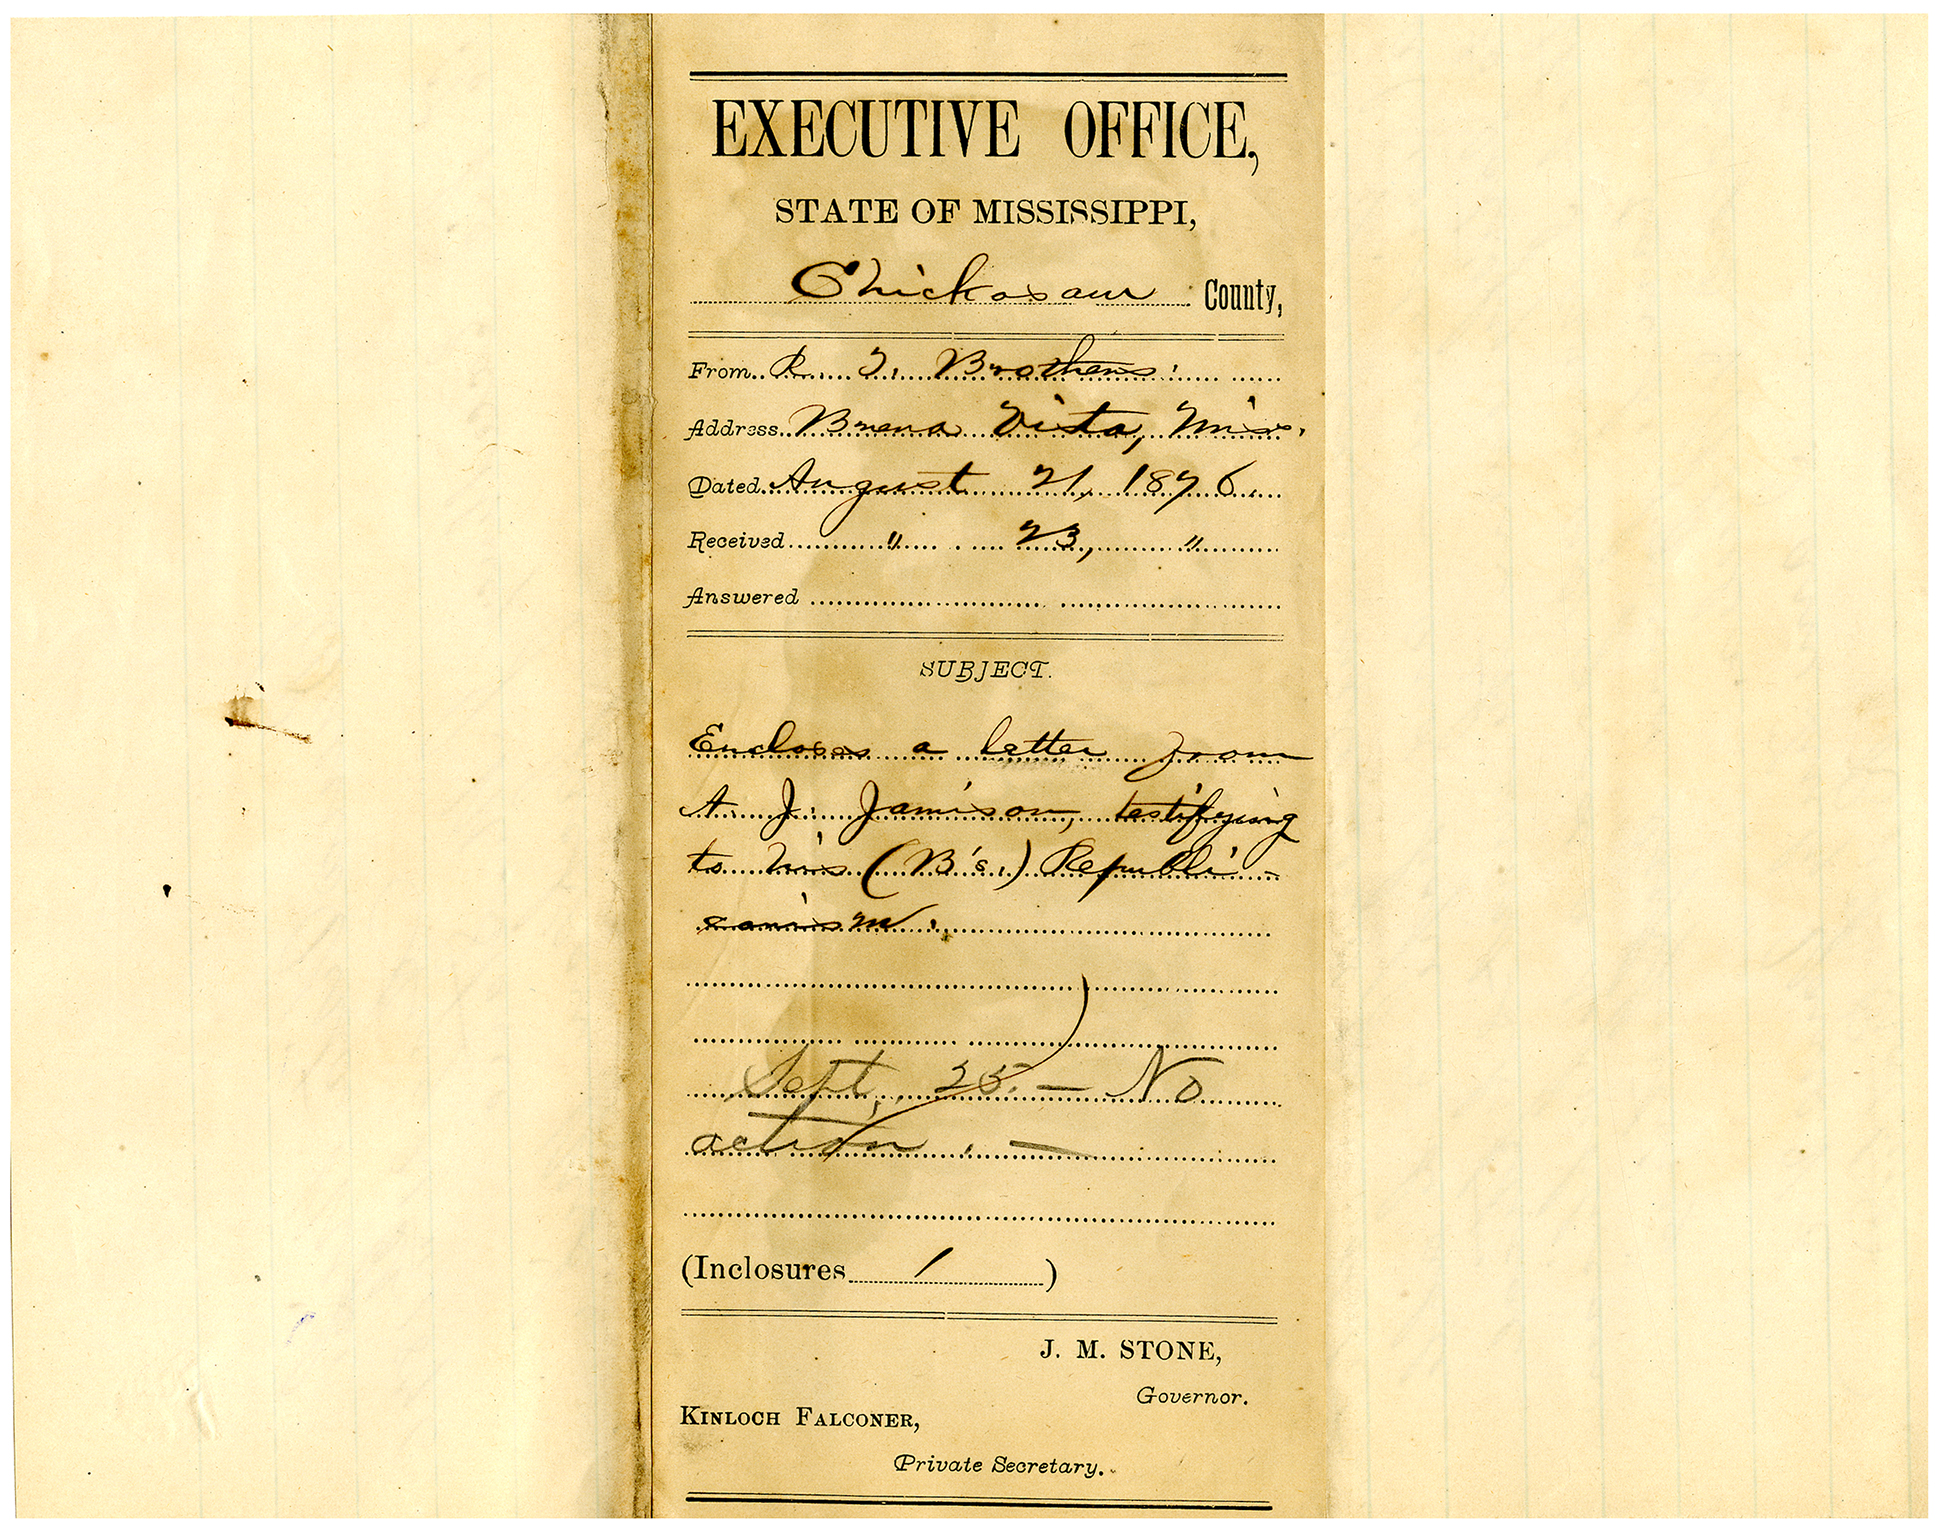 EXECUTIVE OFFICE,
STATE OF MISSISSIPPI,
Chickasaw County,
From R. T. Brothers.
Address Buena Vista, Miss.
Dated August 21, 1876.
Received " 23, "
Answered
SUBJECT.
Encloses a letter from
A. J. Jamison, testifying
to his (B's.) Republi-
canism.
Sept, 25. — No
action. —
(Inclosures 1 )
J. M. STONE,
Governor.
KINLOCH FALCONER,
Private Secretary.